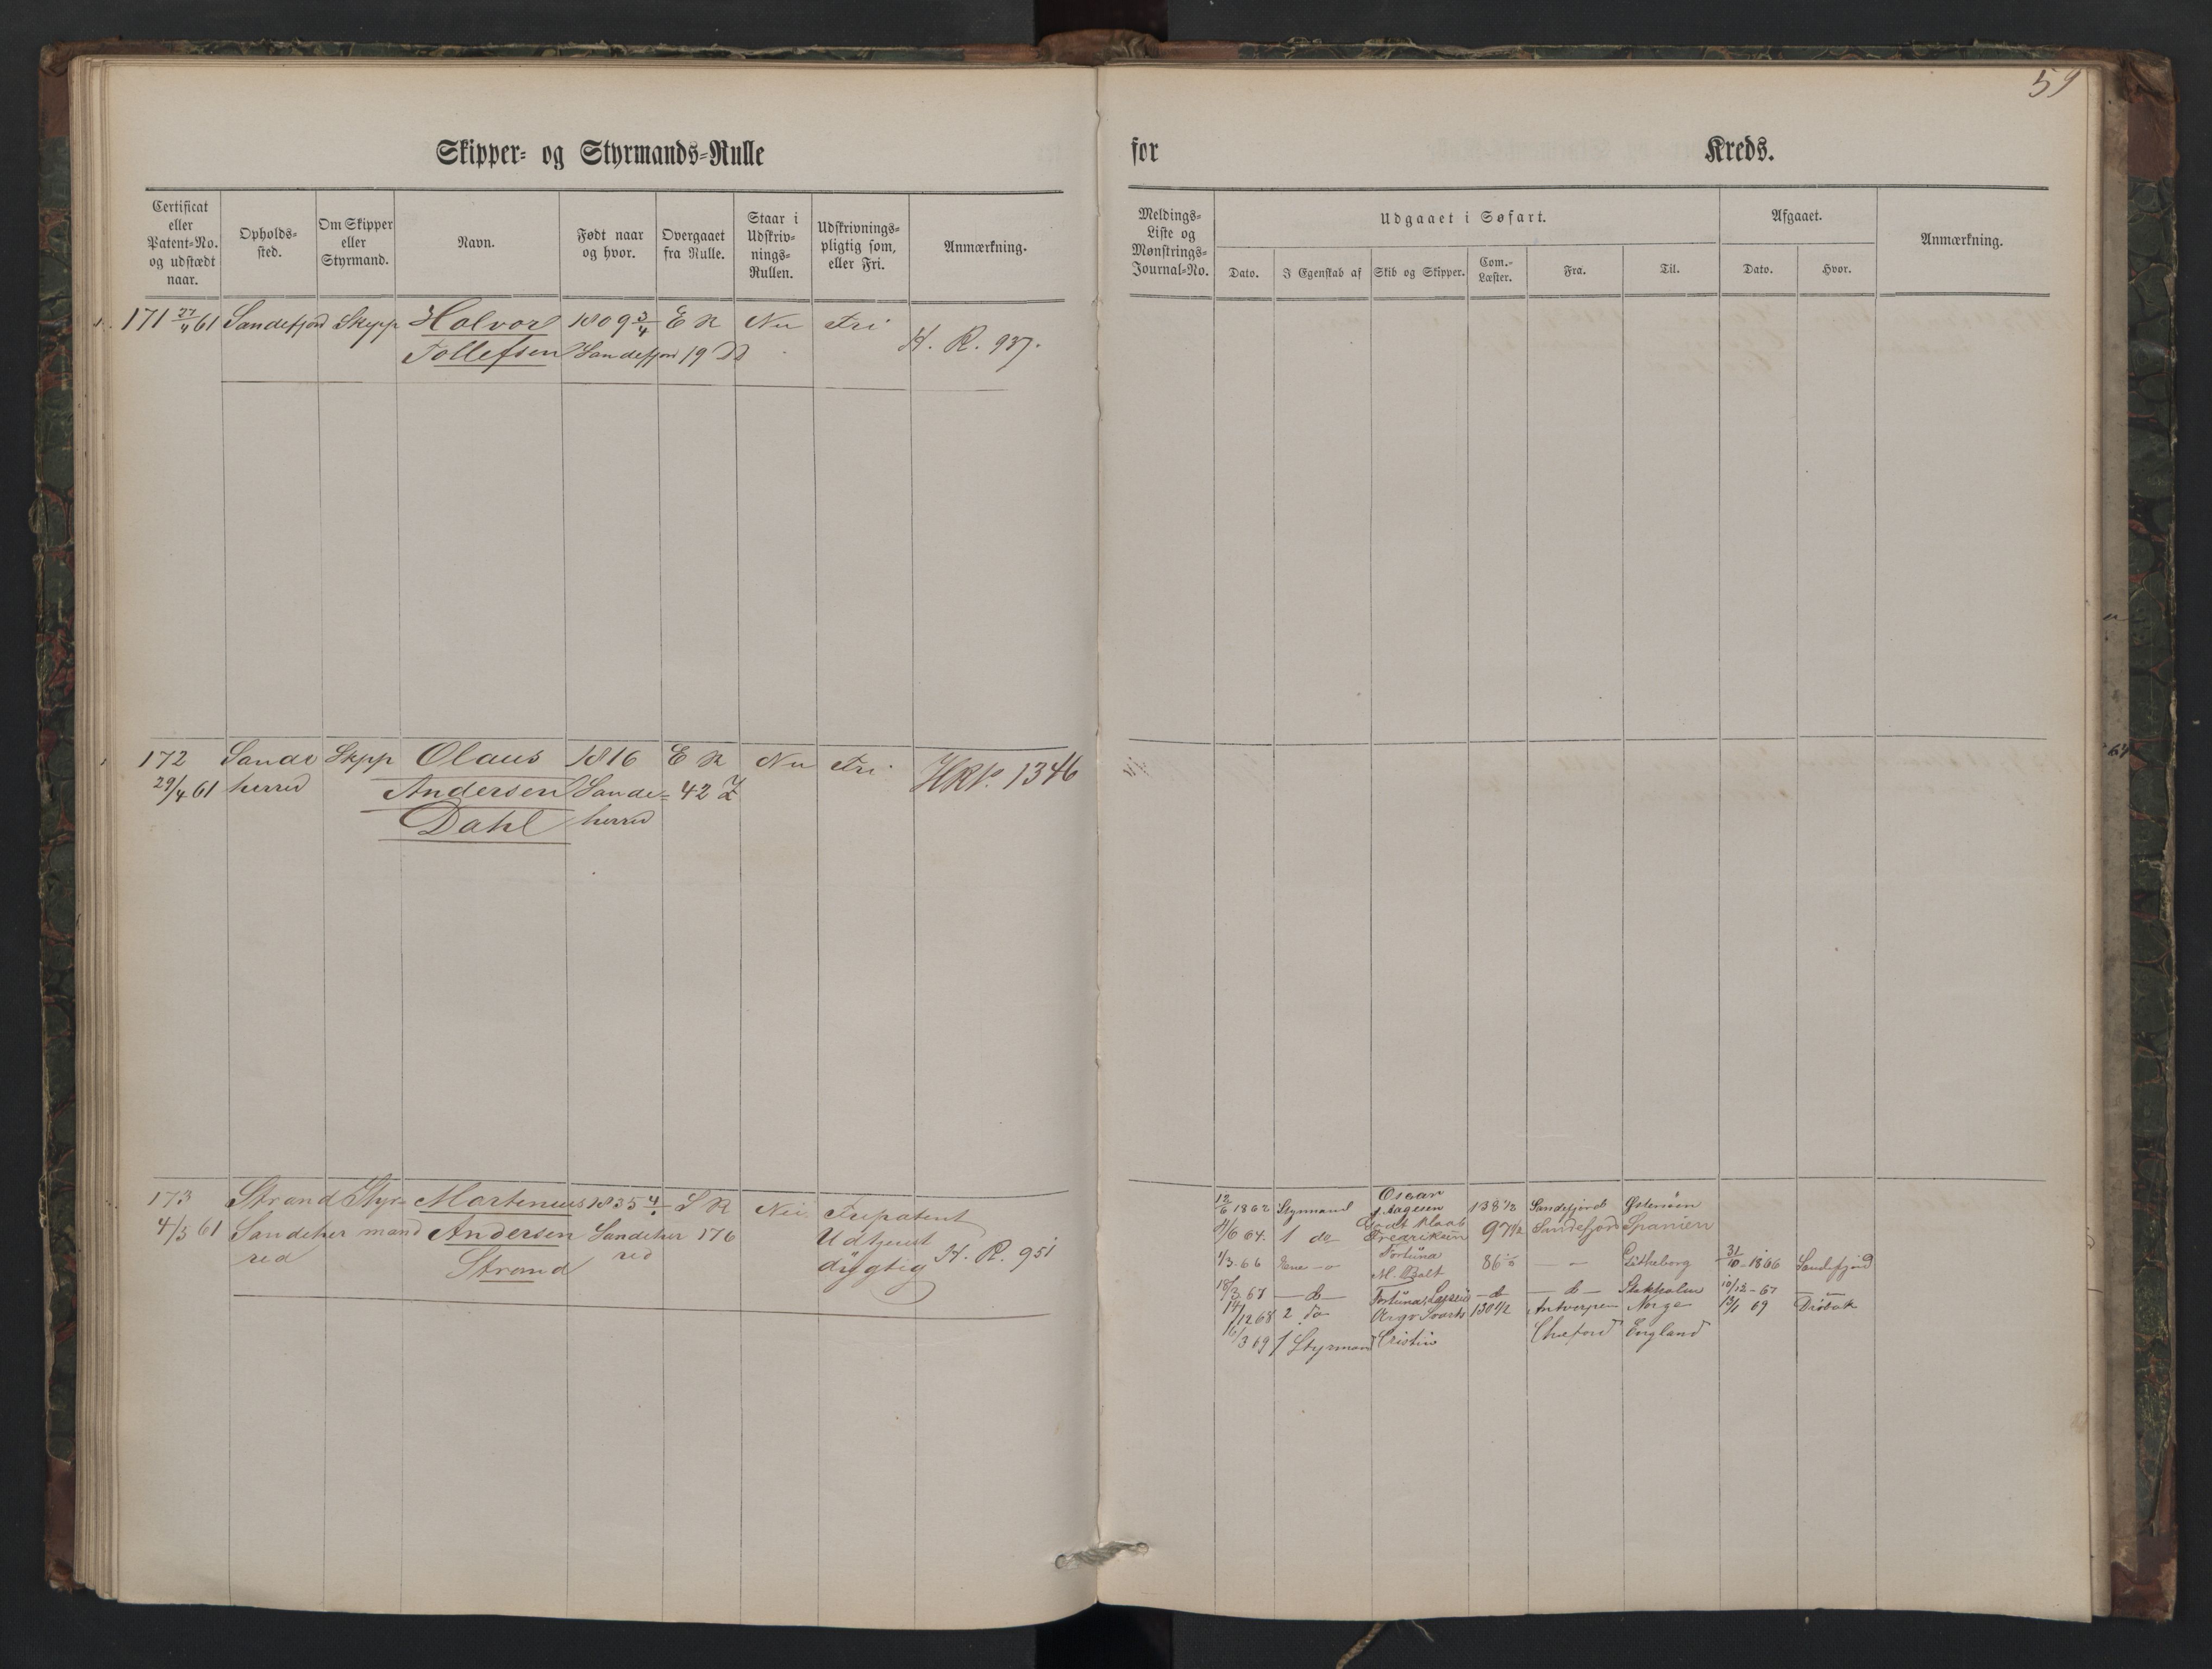 59
Skipper- og Styrmands-Rulle for Kreds.
Certificat eller Patent-No. og udstædt naar.
Opholds-sted.
Om Skipper eller Styrmand.
Navn.
Født naar og hvor.
Overgaaet fra Rulle.
Staar i Udskriv-nings-Rullen.
Udskrivnings-pligtig som, eller Fri.
Anmærkning.
Meldings-Liste og Mønstrings-Journal-No.
Udgaaet i Søfart.
Dato.
I Egenskab af
Skib og Skipper.
Com.-Læster.
Fra.
Til.
Afgaaet.
Dato.
Hvor.
Anmærkning.
171 27/4 61 Sandefjord Skipp Halvor 1809 3/4 E R Nei Fri
Tollefsen Sandefjord 19 H. R. 937.
172 Sande Skpp Olaus 1816 E R Nei Fri. HRNo. 1346
29/4 61 herred Andersen Sande- 42 Z
Dahl herred
173 Strand Styr- Martenius 1835 4/. S R Nei Fripatent
4/5 61 Sandeher mand Andersen Sandeher 176 Udtjent
red Strand red dygtig H. R. 951
12/6 1862 Styrmand Oscar
Aagesen 138 1/2 Sandefjord Østersøen
11/6 64. 1 do Fredriksen 97 1/2 Sandefjord Spanien
1/3-66 Fortuna
M. Bolt 86 — — Götheborg 31/10-1866 Sandefjord
18/3 67 — do — Fortuna — do — — do — Stokholm 10/12-67 —
14/12 68 2 do Argo Svarts 130 1/2 Antverpen Norge 13/1 69 Drøbak
16/3 69 1 Styrmand Cristin England